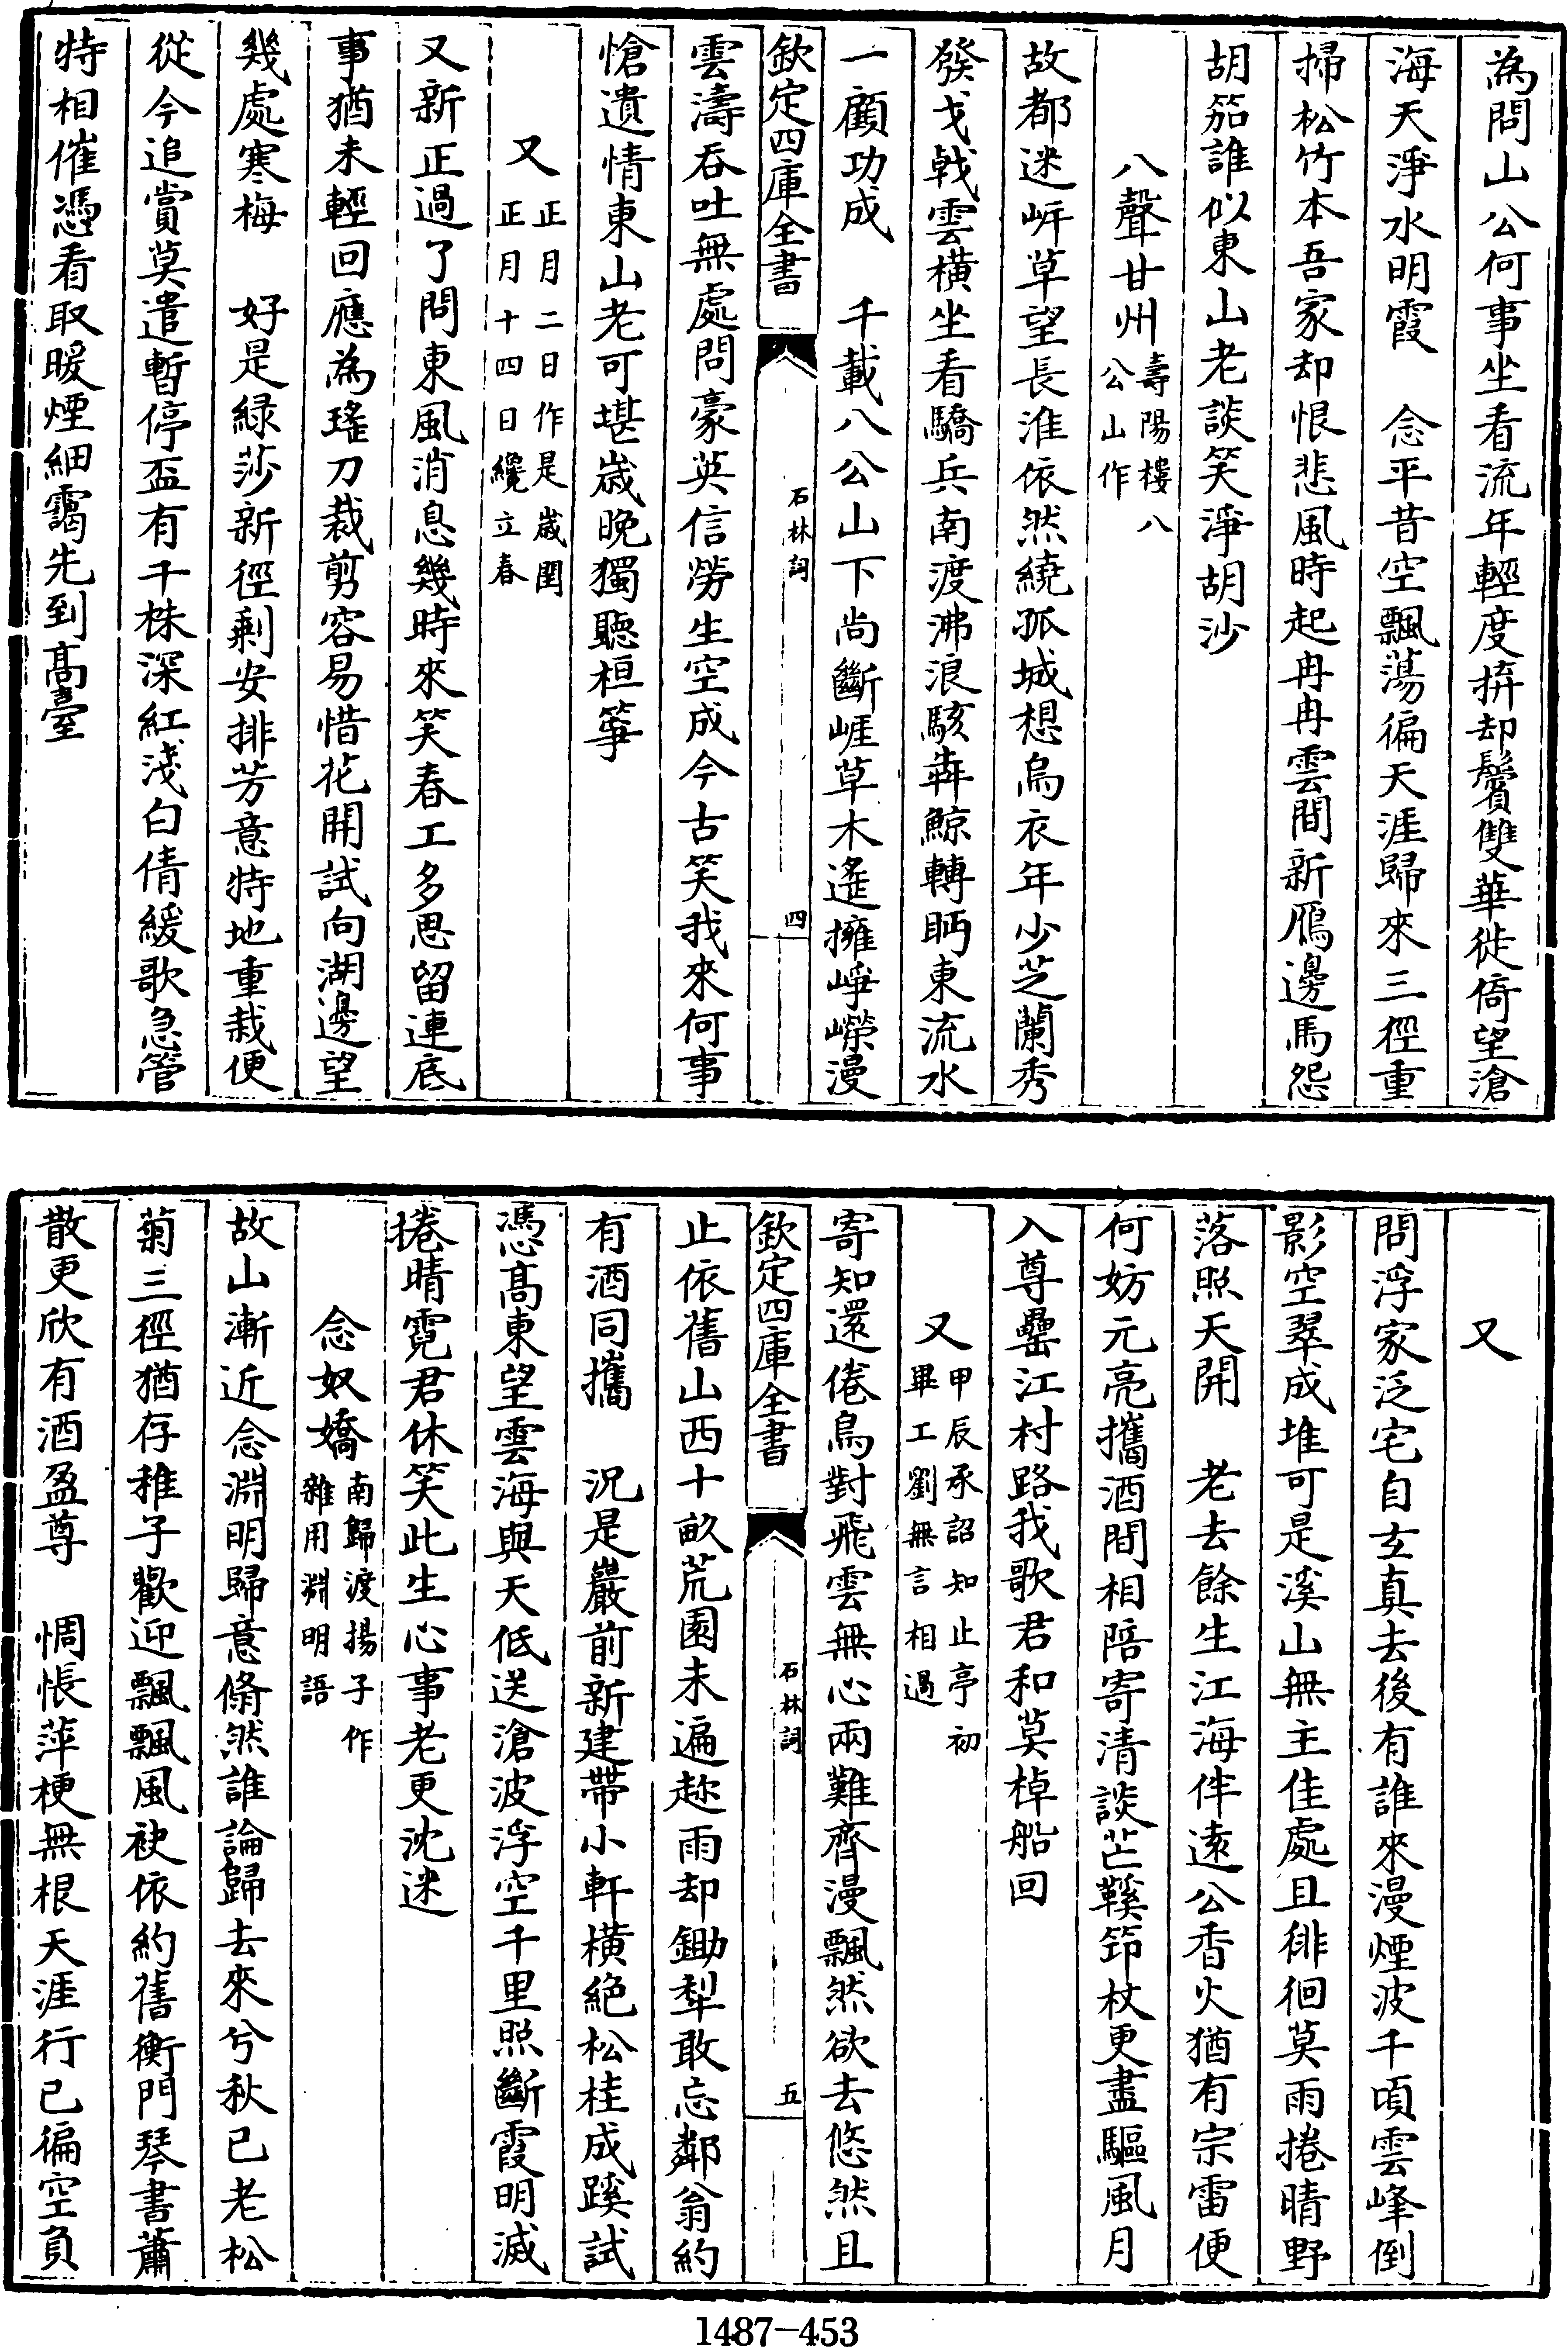 為問山公何事坐看流年輕度拚却鬢雙華徙倚望滄
海天淨水明霞　念平昔空飄蕩徧天涯歸來三徑重
掃松竹本吾家却恨悲風時起冉冉雲間新鴈邊馬怨
胡笳誰似東山老談笑淨胡沙
八聲甘州壽陽樓八公山作
故都迷岍草望長淮依然繞孤城想烏衣年少芝蘭秀
發戈戟雲橫坐看驕兵南渡沸浪駭犇鯨轉眄東流水
一顧功成　千載八公山下尚斷崕草木遙擁崢嶸漫
欽定四庫全書　石林詞　四
雲濤吞吐無處問豪英信勞生空成今古笑我來何事
愴遺情東山老可堪歲晚獨聽桓箏
又正月二日作是歲閏正月十四日纔立春
又新正過了問東風消息幾時來笑春工多思留連底
事猶未輕回應為瑤刀裁剪容易惜花開試向湖邊望
幾處寒梅　好是緑莎新徑剩安排芳意特地重栽便
從今追賞莫遣暫停盃有千株深紅淺白倩緩歌急管
特相催憑看取暖煙細靄先到高臺
又
問浮家泛宅自玄真去後有誰來漫煙波千頃雲峰倒
影空翠成堆可是溪山無主佳處且徘徊莫雨捲晴野
落照天開　老去餘生江海伴遠公香火猶有宗雷便
何妨元亮攜酒間相陪寄清談芒鞵筇杖更盡驅風月
入尊罍江村路我歌君和莫棹船回
又甲辰承詔知止亭初畢工劉無言相過
寄知還倦鳥對飛雲無心兩難齊漫飄然欲去悠然且
欽定四庫全書　石林詞　五
止依舊山西十畝荒園未遍趂雨却鋤犂敢忘鄰翁約
有酒同攜　況是巖前新建帶小軒橫絶松桂成蹊試
憑高東望雲海與天低送滄波浮空千里照斷霞明滅
捲晴霓君休笑此生心事老更沈迷
念奴嬌南歸渡揚子作雜用淵明語
故山漸近念淵明歸意翛然誰論歸去來兮秋已老松
菊三徑猶存稚子歡迎飄飄風袂依約舊衡門琴書蕭
散更欣有酒盈尊　惆悵萍梗無根天涯行已徧空負
1487-453